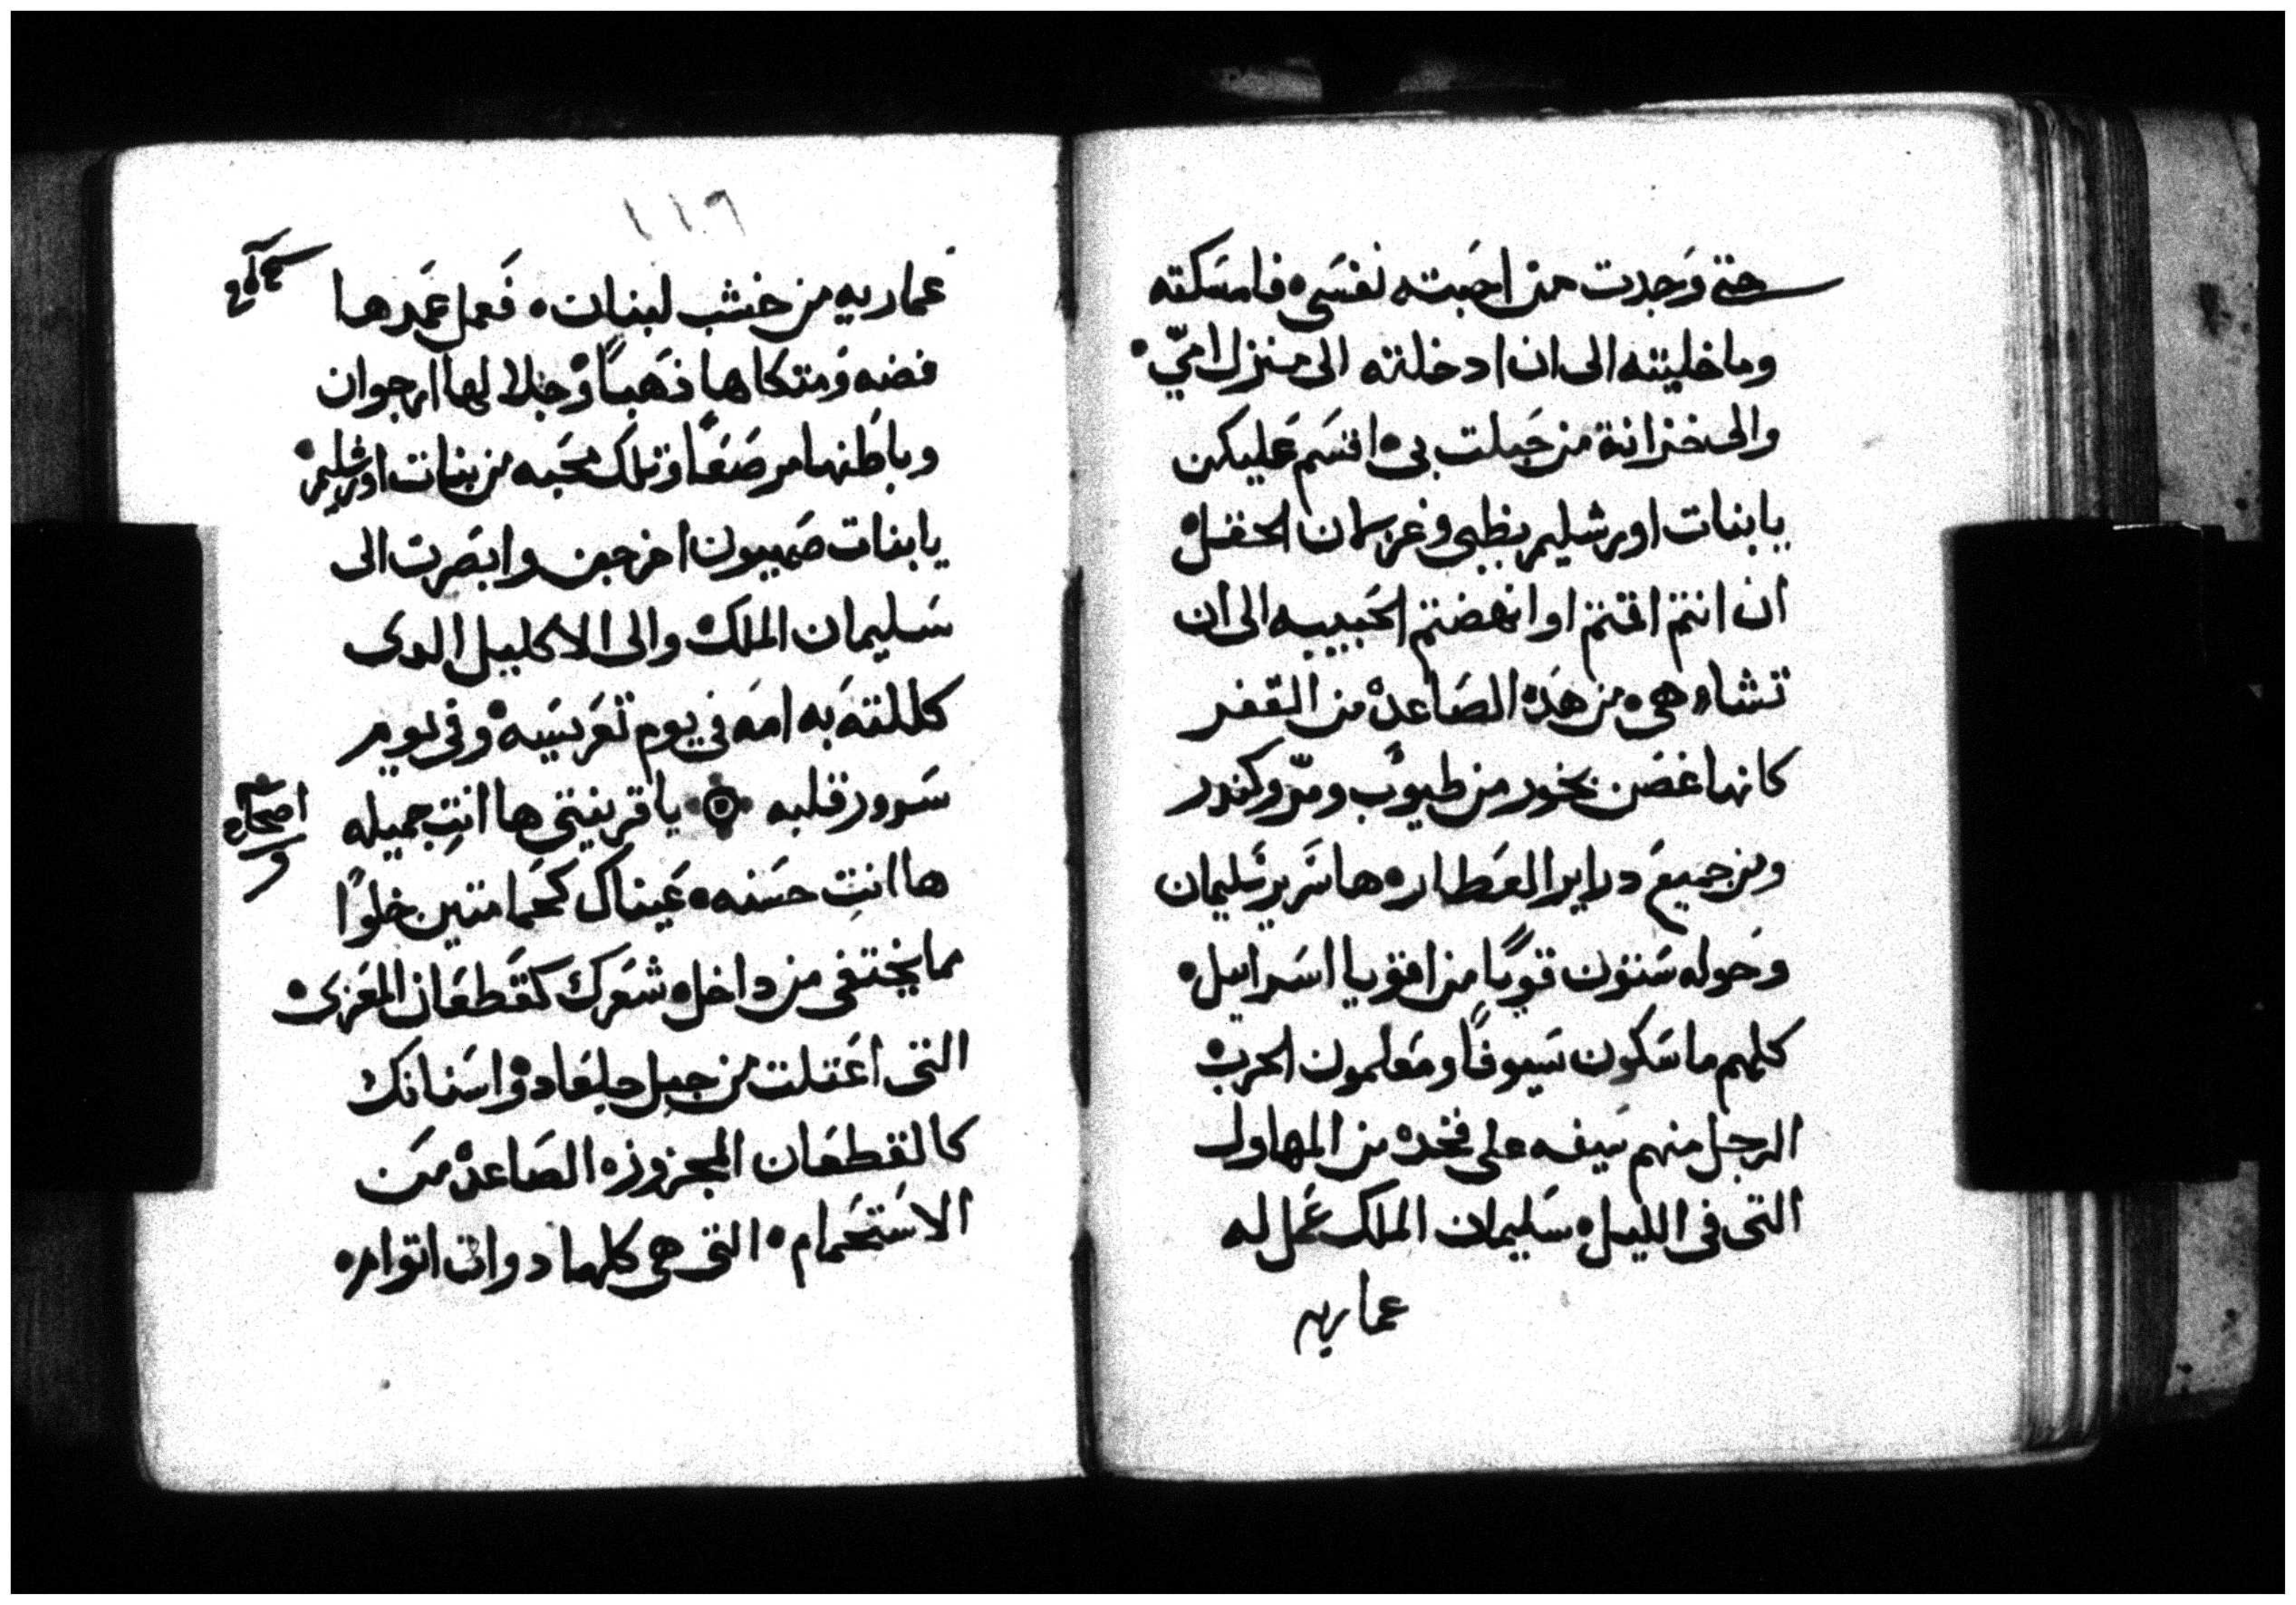 حتى وَجدت من احبَبته نفسَي ه فامسَكته
وما خليته الى ان ادخلته الى منزل امّي ه
والى خزانة من حَبلت بي ه اقسَم عَليكن
يابنات اورشليم بظبى وغزلان الحقل ه
ان انتم اقمتم او انهضتم الحَبيبه الى ان
تشاء هى ه من هَذه الصَاعده من القفر
كانها غصَن بخور من طيوب ومرّ وكندر
ومن جميعَ دراير العَطاره ها سَرير سَليمان
وحَوله سَتون قويًا من اقويا اسَراييل ه
كلهم ماسَكون سَيوفًا ومَعلمون الحرب ه
الرجل منهم سَيفه على فخده من المهاول
التى فى الليل ه سَليمان الملك عَمل له
عماريه
١١٦
عماريه من خشب لبنان ه فَعمل عَمَدها
فضه وَمتكاها ذهَبًا ه وْجلالها ارجوان
وباطَنها مرصَعًا وتلك محَبه من بنات اورشليم ه
يابنات صَهيون اخرجين وابصَرت الى
سَليمان الملك ه والى الاكليل الدى
كللته به امَه في يوم تعَريسَه ه وفى يوم
سَرور قلبه ۞ يا قرينتي ها انتِ جميله
اصحاح
و
ها انتِ حسَنه ه عَيناك كحَمامتين خلوًا
مما يختفى من داخل ه شعَرك كقَطعَان المعَزى ه
التى اعَتلت من جبل جلعَاد ه واسَنانك
كالقطعَان المجزوزه الصَاعده من
الاسَتحَمام ه التى هى كلها دوات اتوام ه